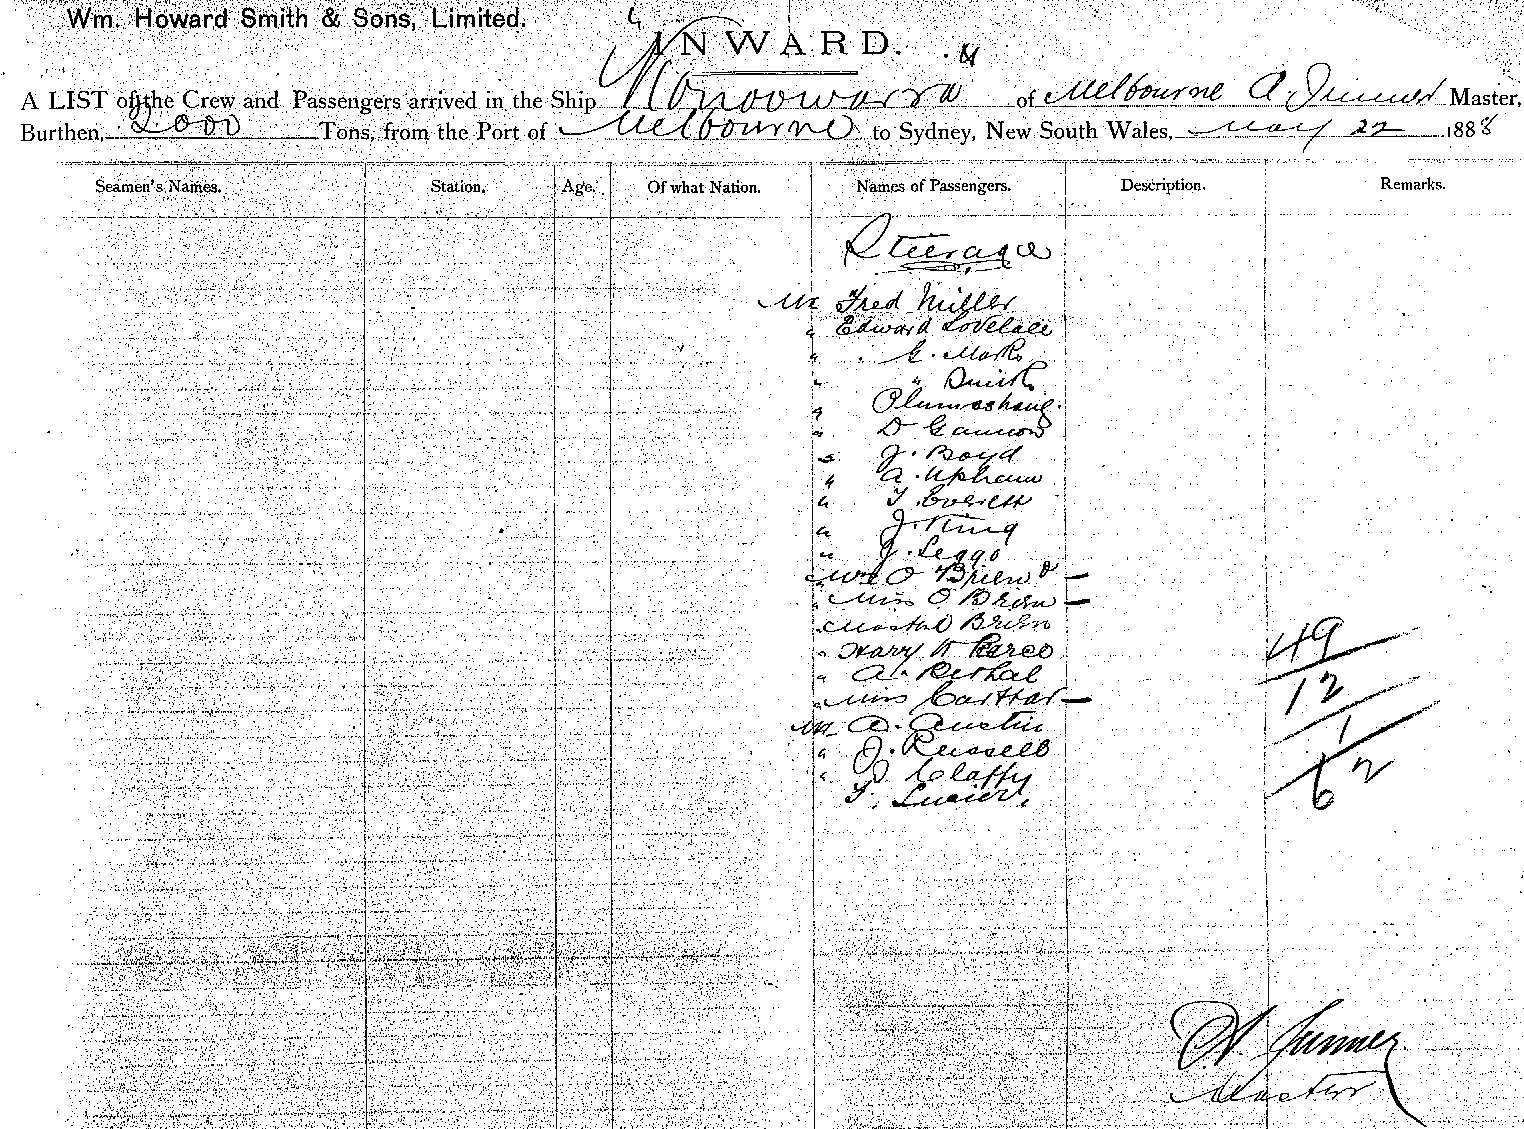 Wm. Howard Smith & Sons, Limited.
INWARD.
A LIST of the Crew and Passengers arrived in the Ship Konoowarra of Melbourne A. Jenner Master,
Burthen, 2000 Tons, from the Port of Melbourne to Sydney, New South Wales, May 22 1888
Seamen's Names. Station. Age. Of what Nation. Names of Passengers. Description. Remarks.
Steerage
Mr Fred Miller
" Edward Lovelace
" G. Marks
" " Smith
"
" D Gannon
" J. Boyd
" A. Upham
" T. Everett
" J. King
" J. Leggo
Mrs O'Brien
" Miss O'Brien
" Master Brien
" Harry
" A.
" Miss
Mr A. Austin
" J. Russell
" Claffy
T.
49
12
1
62
A. Jenner
Master